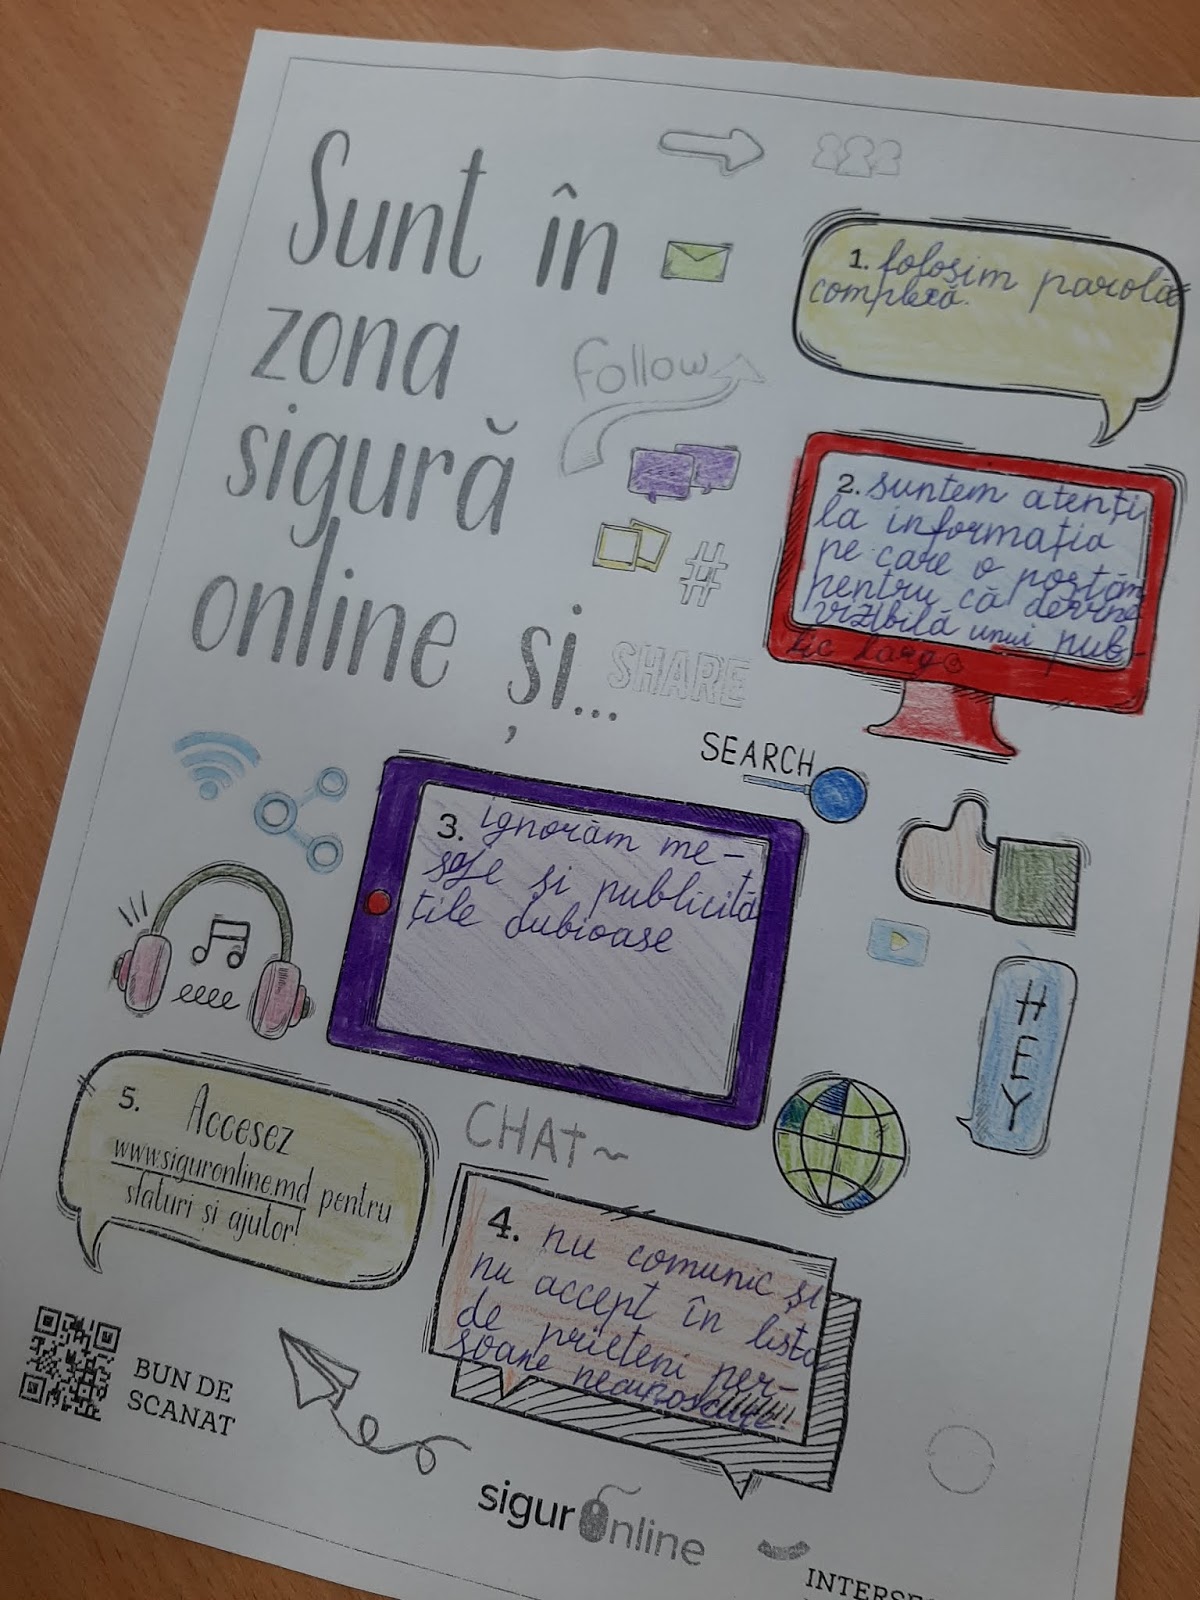 Sunt în
zona
sigură
online și...
Follow
#
SHARE
1. folosim parolă
complexă.
2. suntem atenți
la informația
pe care o postăm
pentru că devine
vizibilă unui pub-
lic larg
SEARCH
3. ignorăm me-
saje și publicită
țile dubioase
HEY
5. Accesez
www.siguronline.md pentru
sfaturi și ajutor!
CHAT~
4. nu comunic și
nu accept în lista
de prieteni per-
soane necunoscute!
BUN DE
SCANAT
sigur online